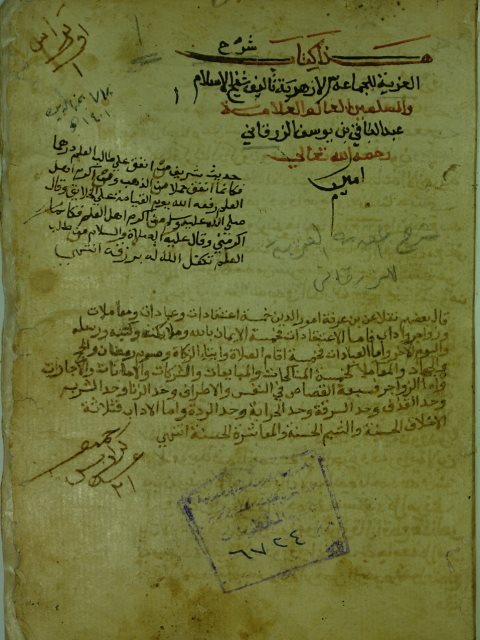 شرح
هذا كتاب
العزية للجماعة الازهرية تاليف شيخ الاسلام
والمسلمين العالم العلامة
عبد الباقي بن يوسف الزرقاني
رحمه الله تعالى
امين
حديث شريف من انفق على طالب العلم درهما
فكانما انفق جبلا من الذهب ومن اكرم اهل
العلم رفعه الله يوم القيامة على الخلايق وقال
صلى الله عليه وسلم من اكرم اهل العلم فكانما
اكرمني وقال عليه الصلاة والسلام من طلب
العلم تكفل الله له برزقه انتهى
شرح العزية
للزرقاني
قال بعضهم نقلا عن بن عرفة امور الدين خمسة اعتقادات وعبادات ومعاملات
وزواجر واداب فاما الاعتقادات فخمسة الايمان بالله وملايكته وكتبه ورسله
واليوم الاخر واما العبادات فخمسة اقام الصلاة وايتاء الزكاة وصوم رمضان والحج
والجهاد والمعاملات خمسة المناكحات والمبايعات والشركات والامانات والاجارات
واما الزواجر فسبعة القصاص في النفس والاطراف وحد الزنا وحد الشرب
وحد القذف وحد السرقة وحد الحرابة وحد الردة واما الاداب فثلاثة
الاخلاق الحسنة والشيم الحسنة والمعاشرة الحسنة انتهى
٦٧٢٤